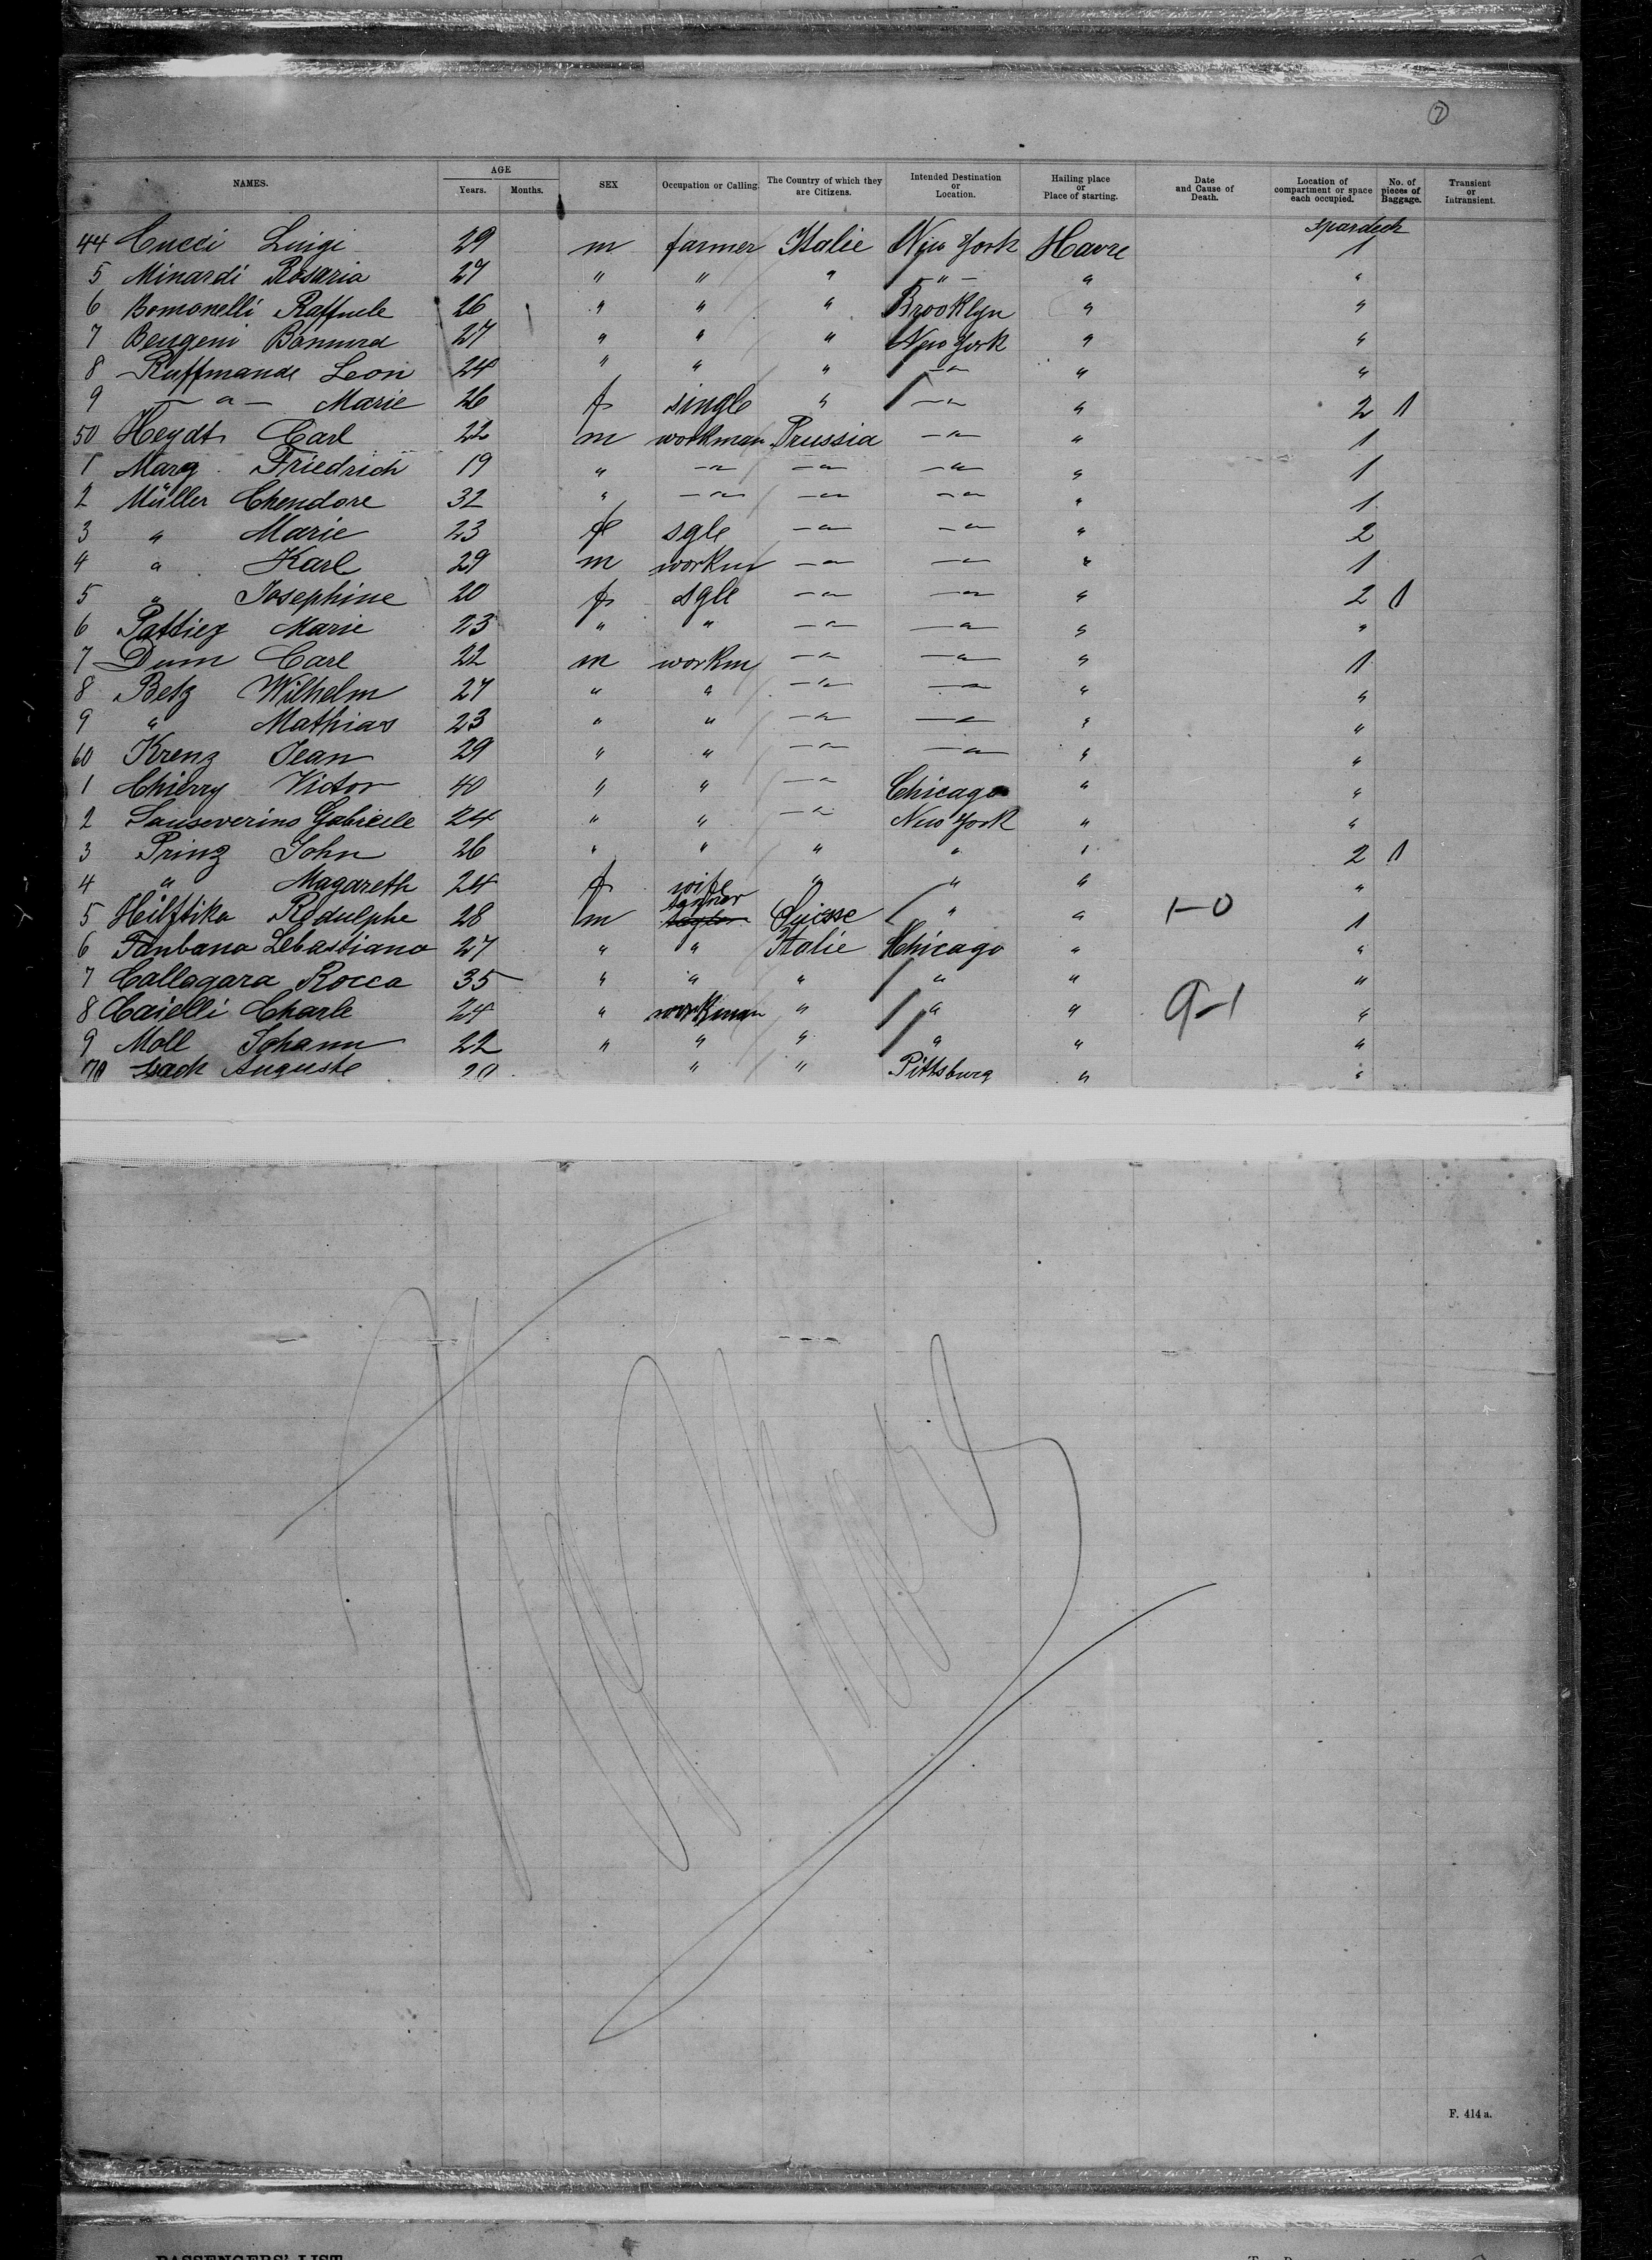 7
NAMES. AGE Years. Months. SEX Occupation or Calling. The Country of which they are Citizens. Intended Destination or Location. Hailing place or Place of starting. Date and Cause of Death. Location of compartment or space each occupied. No. of pieces of Baggage. Transient or Intransient.
Spardeck
44 Cucci Luigi 29 m farmer Italie New York Havre 1
5 Minardi Rosaria 27 " " " — " — " "
6 Bomonelli Raffaele 26 " " " Brooklyn " "
7 Beugeni 27 " " " New York " "
8 Ruffmande Leon 24 " " " — " — " "
9 — " — Marie 26 f single " — " — " 2 1
50 Heydt Carl 22 m workman Prussia — " — " 1
1 Marg Friedrich 19 " — " — — " — — " — " 1
2 Müller Thendore 32 " — " — — " — — " — " 1
3 " Marie 23 f sgle — " — — " — " 2
4 " Karl 29 m workm — " — — " — " 1
5 " Josephine 20 f sgle — " — — " — " 2 1
6 Pattieg Marie 23 " " — " — — " — " "
7 Dum Carl 22 m workm — " — — " — " 1
8 Betz Wilhelm 27 " " — " — — " — " "
9 " Mathias 23 " " — " — — " — " "
60 Krenz Jean 29 " " — " — — " — " "
1 Thierry Victor 40 " " — " — Chicago " "
2 Sauseverino Gabriele 24 " " — " — New York " "
3 Prinz John 26 " " " " " 2 1
4 " Magareth 24 f wife " " " "
5 Hilftika Rodulphe 28 m tanner Suisse " " 1-0 1
6 Fanbana Sebastiano 27 " " Italie Chicago " "
7 Callagara Rocca 35 " " " " " "
8 Caielli Charle 24 " workman " " " 9-1 "
9 Moll Johann 22 " " " " " "
70 Sack Auguste 20 " " Pittsburg " "
F. 414 a.
PASSENGERS' LIST